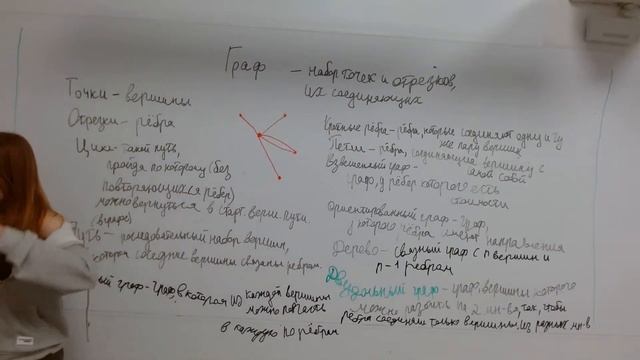 Граф – набор точек и отрезков,
их соединяющих
Точки – вершины
Отрезки – рёбра
Цикл – такой путь,
пройдя по которому (без
повторяющихся рёбер)
можно вернуться в старт. верш. пути.
(в графе)
Путь – последовательный набор вершин,
котором соседние вершины связаны ребром.
ый граф – граф, в котором из каждой вершины
можно попасть
в каждую по рёбрам
Кратные рёбра – рёбра, которые соединяют одну и ту
же пару вершин
Петли – рёбра, соединяющие вершину с
самой собой
Взвешенный граф –
граф, у рёбер которого есть
стоимости
Ориентированный граф – граф,
у которого рёбра имеют направления
Дерево – связный граф с n вершин и
n-1 рёбрам
Двудольный граф – граф, вершины которого
можно разбить на 2 мн-ва, так, чтобы
рёбра соединяли только вершины, из разных мн-в